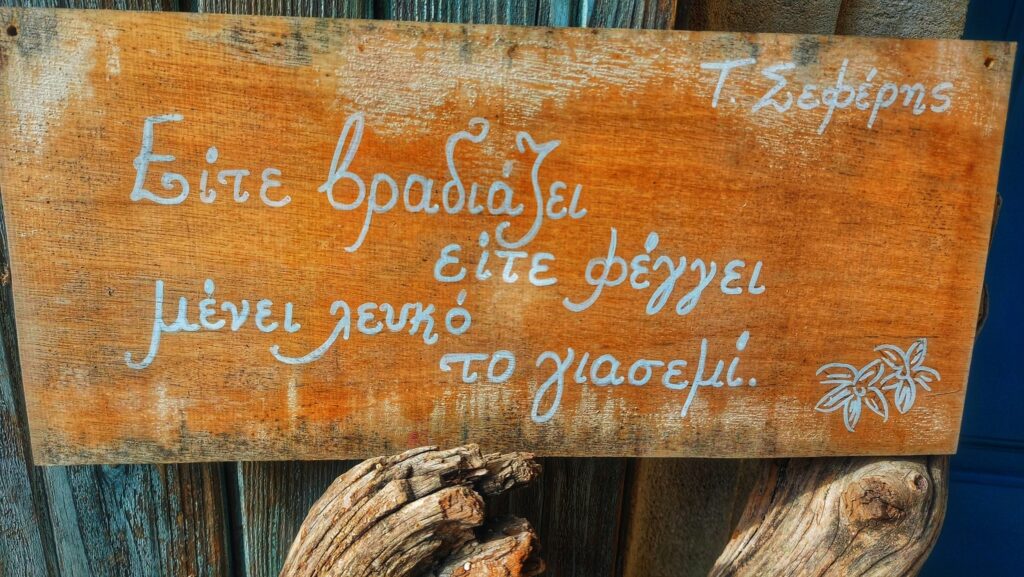 Τ. Σεφέρης
Είτε βραδιάζει
είτε φέγγει
μένει λευκό
το γιασεμί.